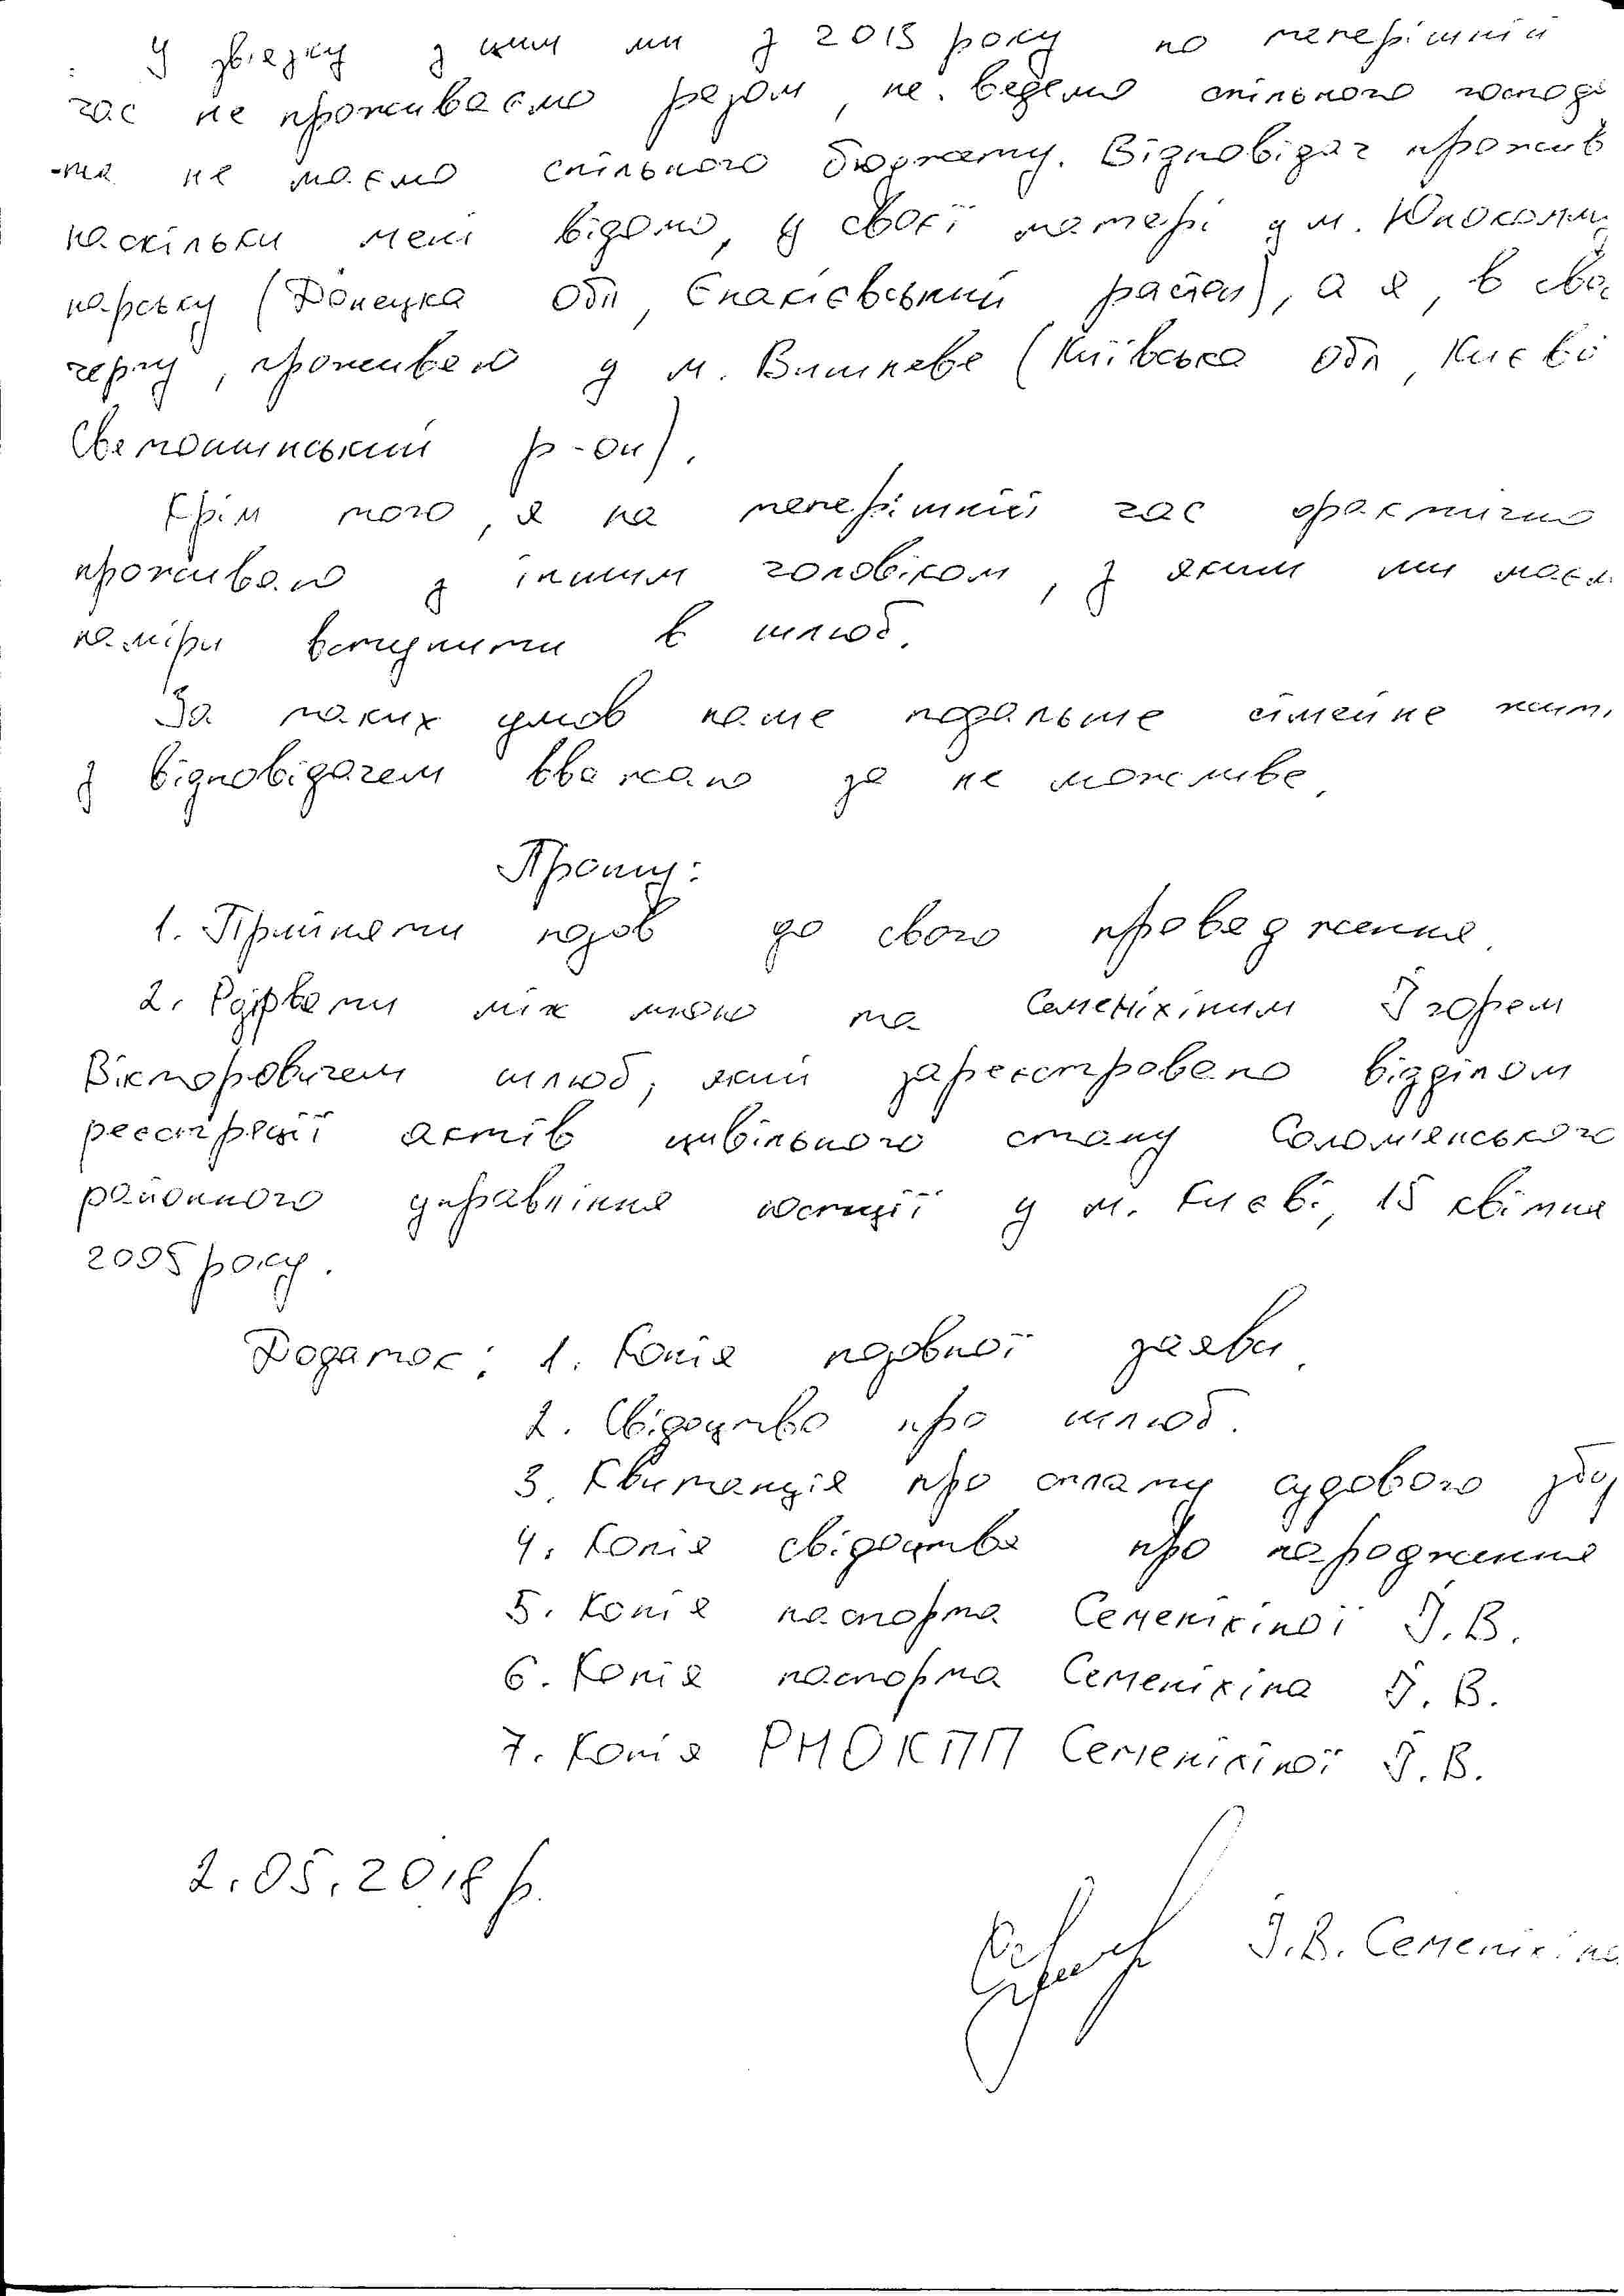 У зв'язку з цим ми з 2015 року по теперішній
час не проживаємо разом, не ведемо спільного господ
-та не маємо спільного бюджету. Відповідач прожив
наскільки мені відомо, у своєї матері у м. Юнокому
нарську (Донецка обл, Єнакієвський район), а я, в сво
чергу, проживаю у м. Вишневе (Київська обл, Києво
Святошинський р-он).
Крім того, я на теперішній час фактично
проживаю з іншим чоловіком, з яким ми маєм
наміри вступити в шлюб.
За таких умов наше подальше сімейне житт
з відповідачем вважаю за не можливе.
Прошу:
1. Прийняти позов до свого провадження.
2. Розірвати між мною та Семеніхіним Ігорем
Вікторовичем шлюб, який зареєстровано відділом
реєстрації актів цивільного стану Солом'янського
районного управління юстиції у м. Києві, 15 квітня
2005 року.
Додаток: 1. Копія позовної заяви.
2. Свідоцтво про шлюб.
3. Квитанція про сплату судового збо
4. Копія свідоцтва про народження
5. Копія паспорта Семеніхіної І.В.
6. Копія паспорта Семеніхіна І.В.
7. Копія РНОКПП Семеніхіної І.В.
2.05.2018 р.
І.В. Семеніхіна